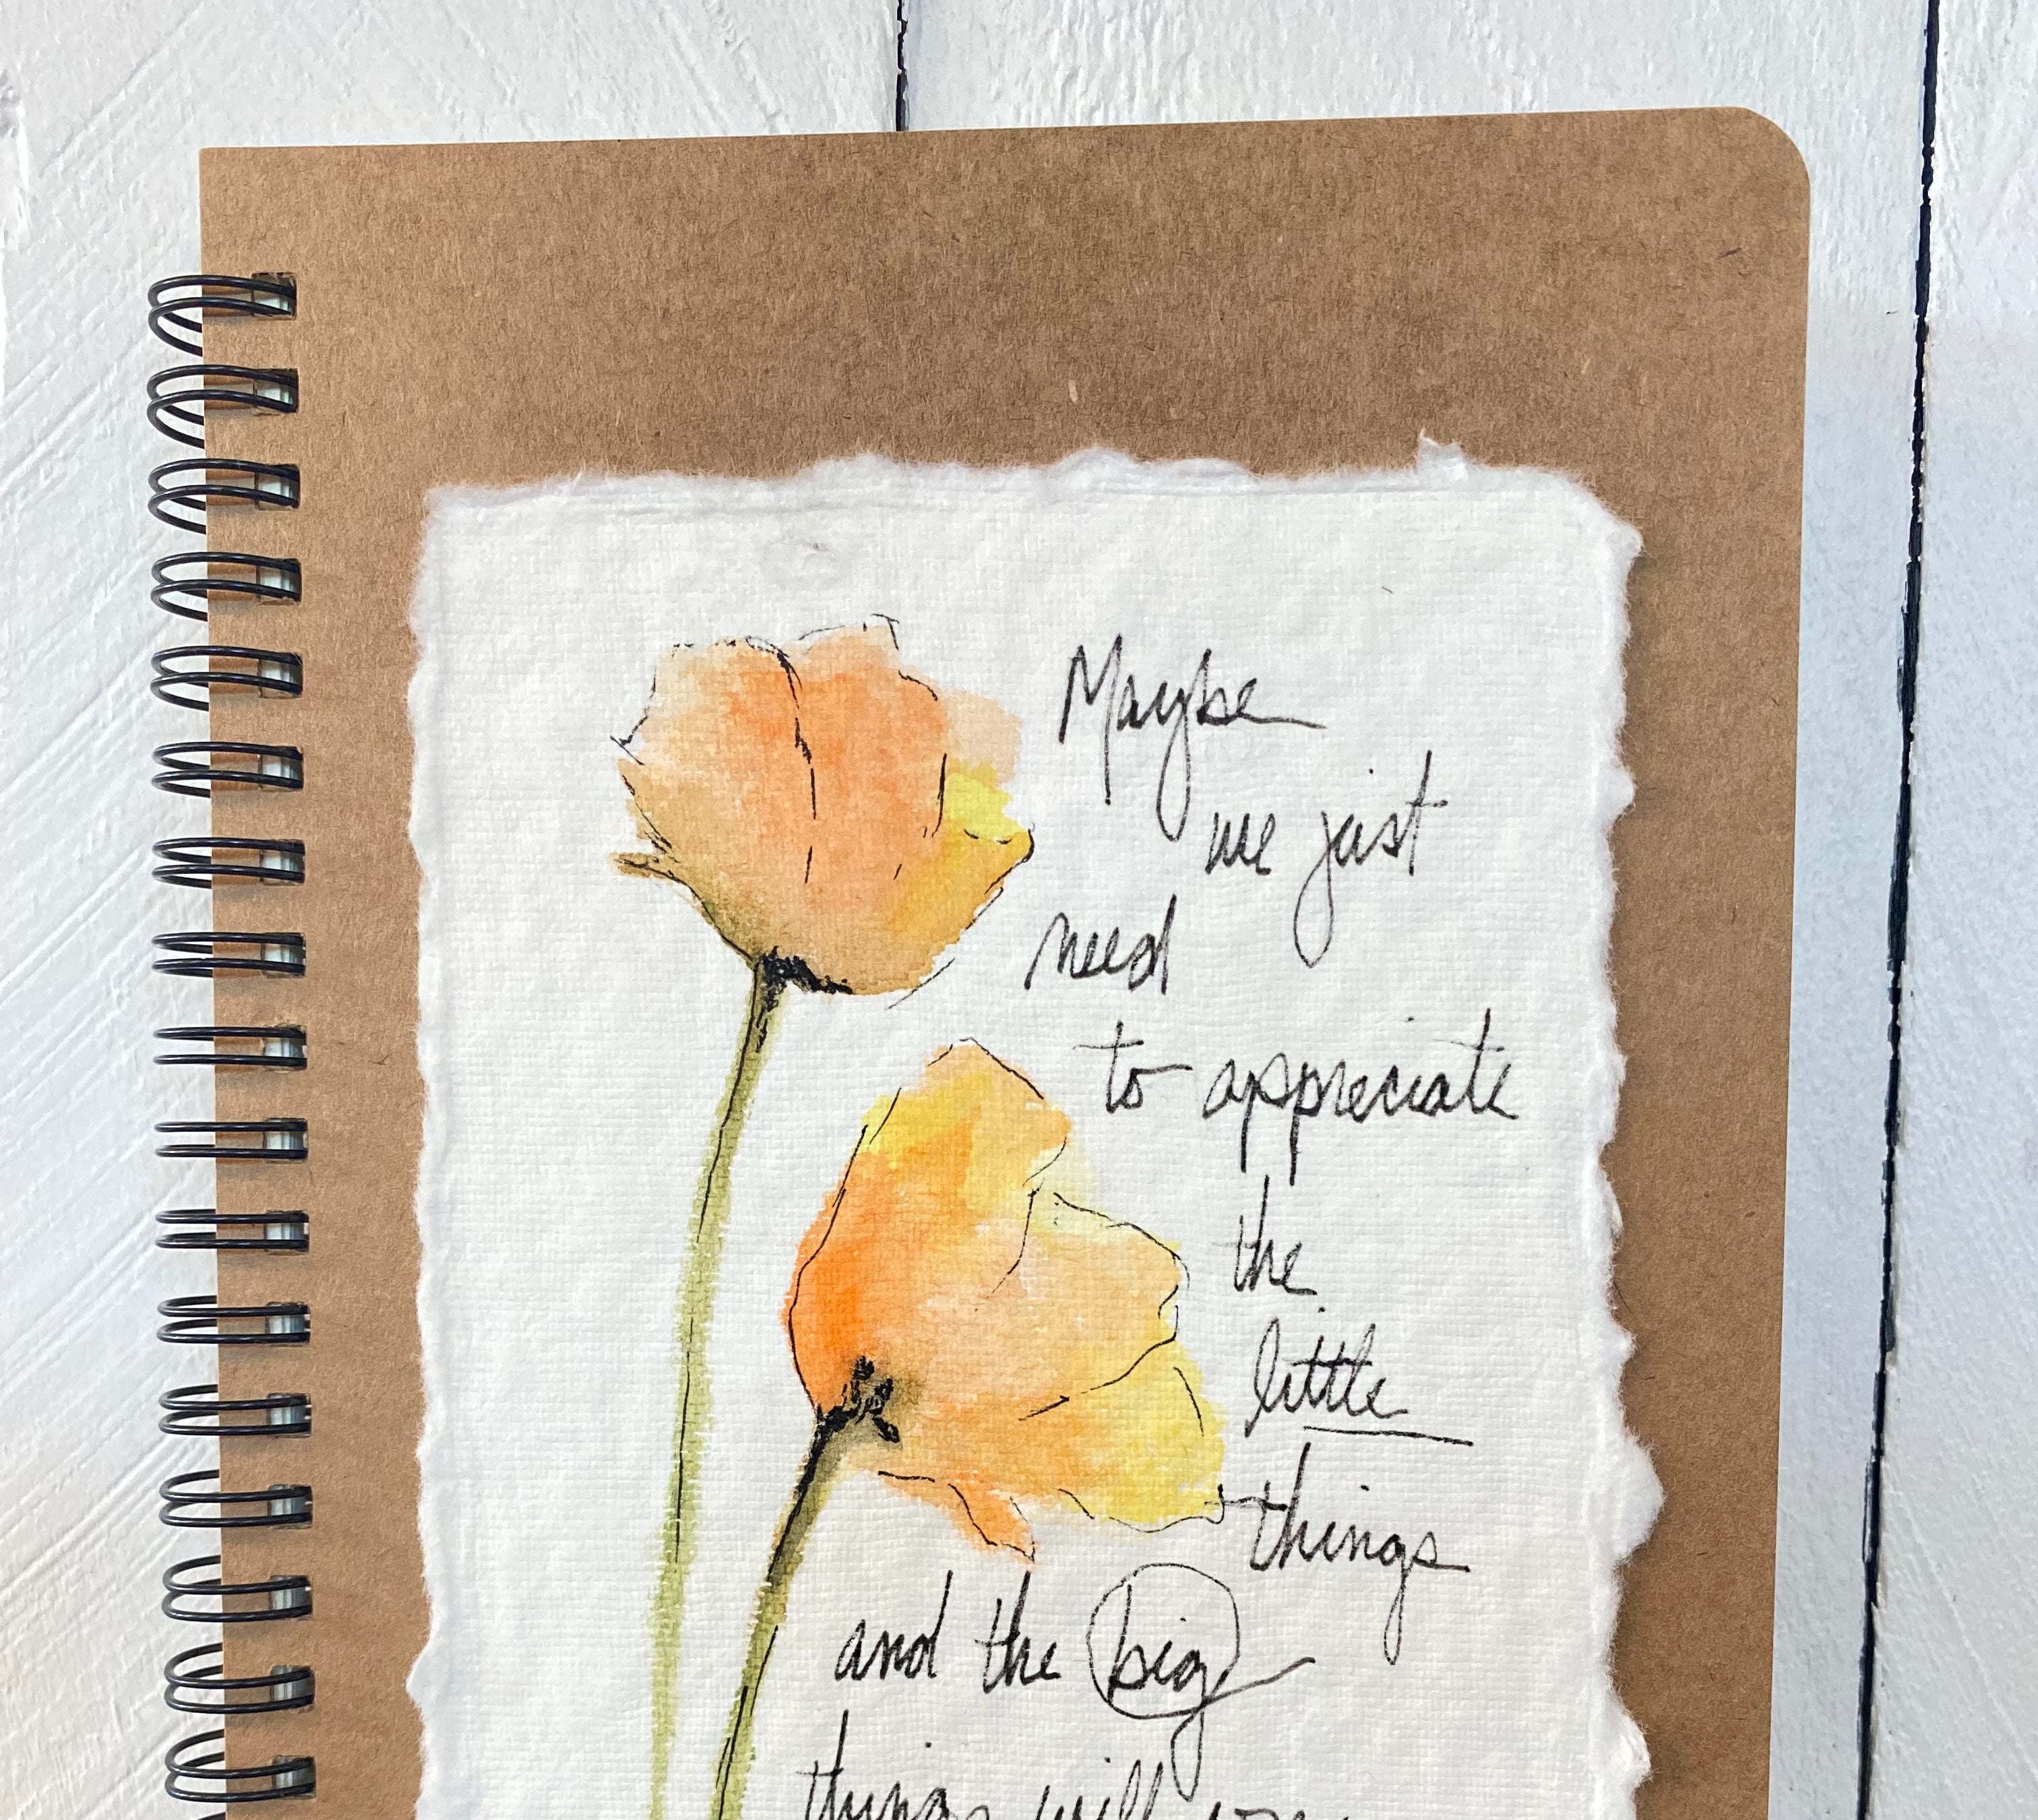 Maybe
we just
need
to appreciate
the
little
things
and the big
things will